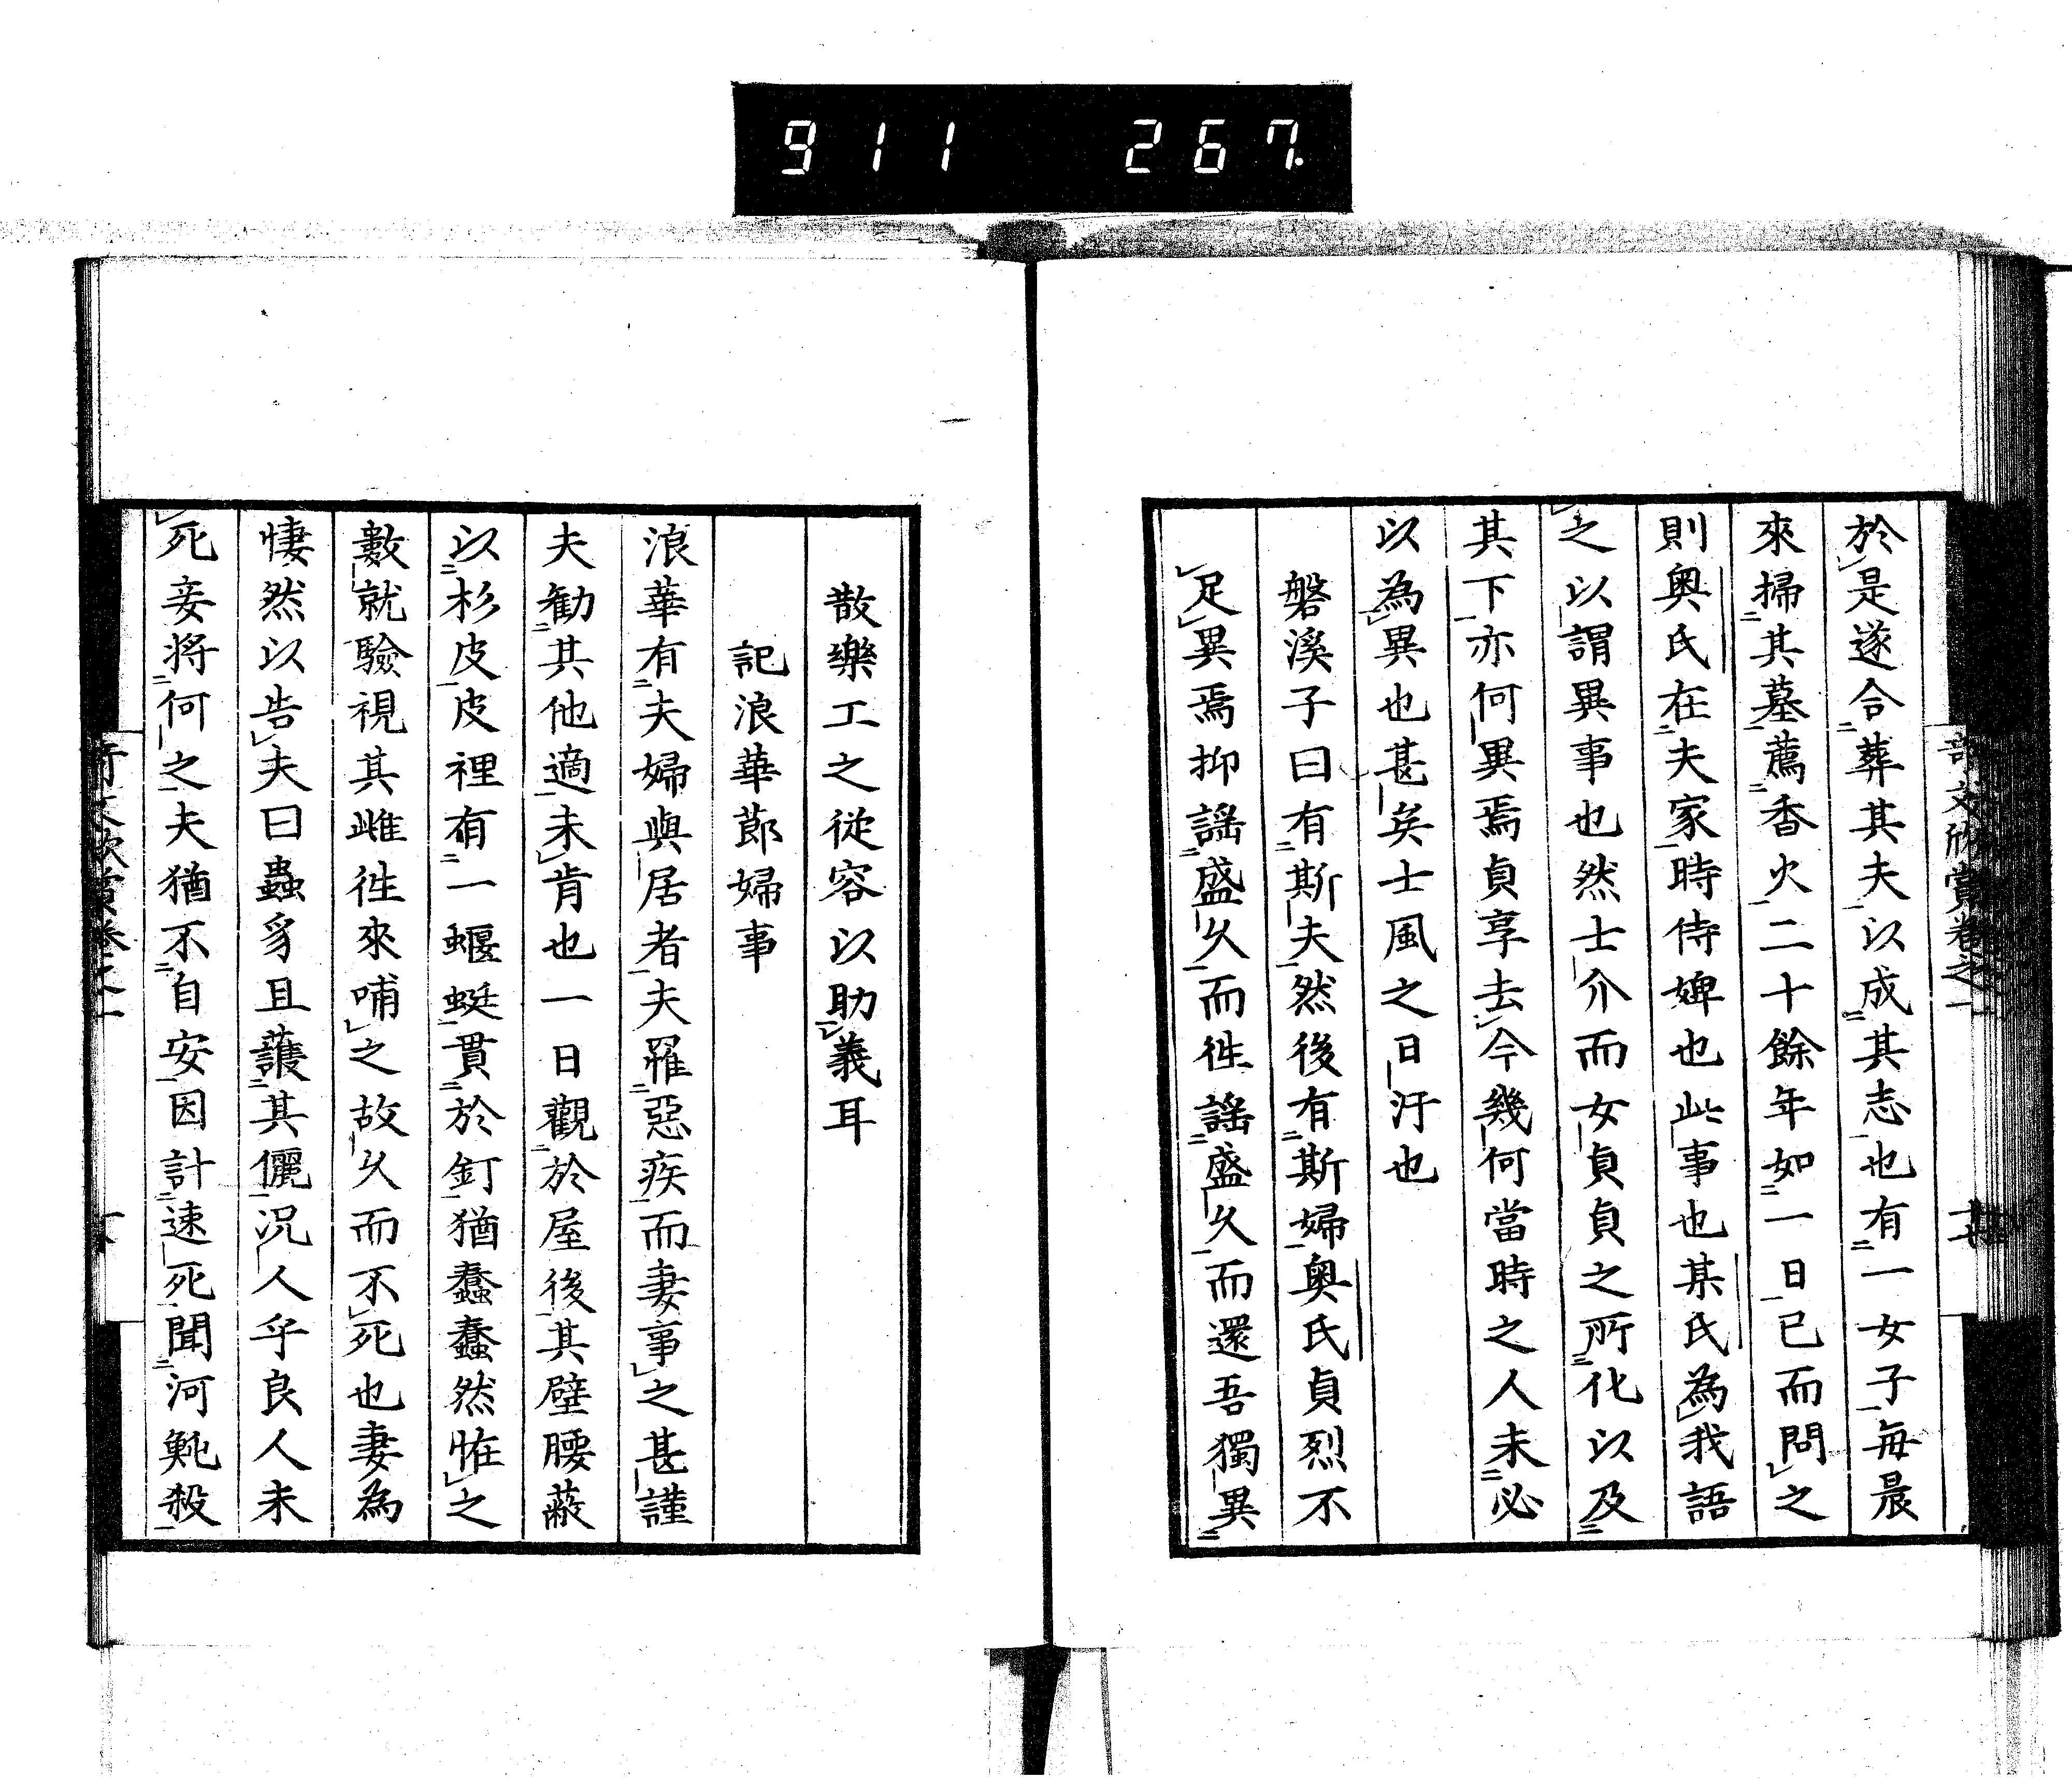 911 267
奇文欣賞卷之一
於是遂合葬其夫以成其志也有一女子每晨
來掃其墓薦香火二十餘年如一日已而問之
則奥氏在夫家時侍婢也此事也某氏為我語
之以謂異事也然士介而女貞貞之所化以及
其下亦何異焉貞享去今幾何當時之人未必
以為異也甚矣士風之日汙也
磐溪子曰有斯夫然後有斯婦奥氏貞烈不
足異焉抑謡盛久而徃謡盛久而還吾獨異
散樂工之從容以助義耳
記浪華節婦事
浪華有夫婦與居者夫罹惡疾而妻事之甚謹
夫勸其他適未肯也一日觀於屋後其壁腰蔽
以杉皮皮裡有一蝘蜓貫於釘猶蠢蠢然恠之
數就驗視其雌徃來哺之故久而不死也妻為
悽然以告夫曰蟲豸且護其儷况人乎良人未
死妾將何之夫猶不自安因計速死聞河魨殺